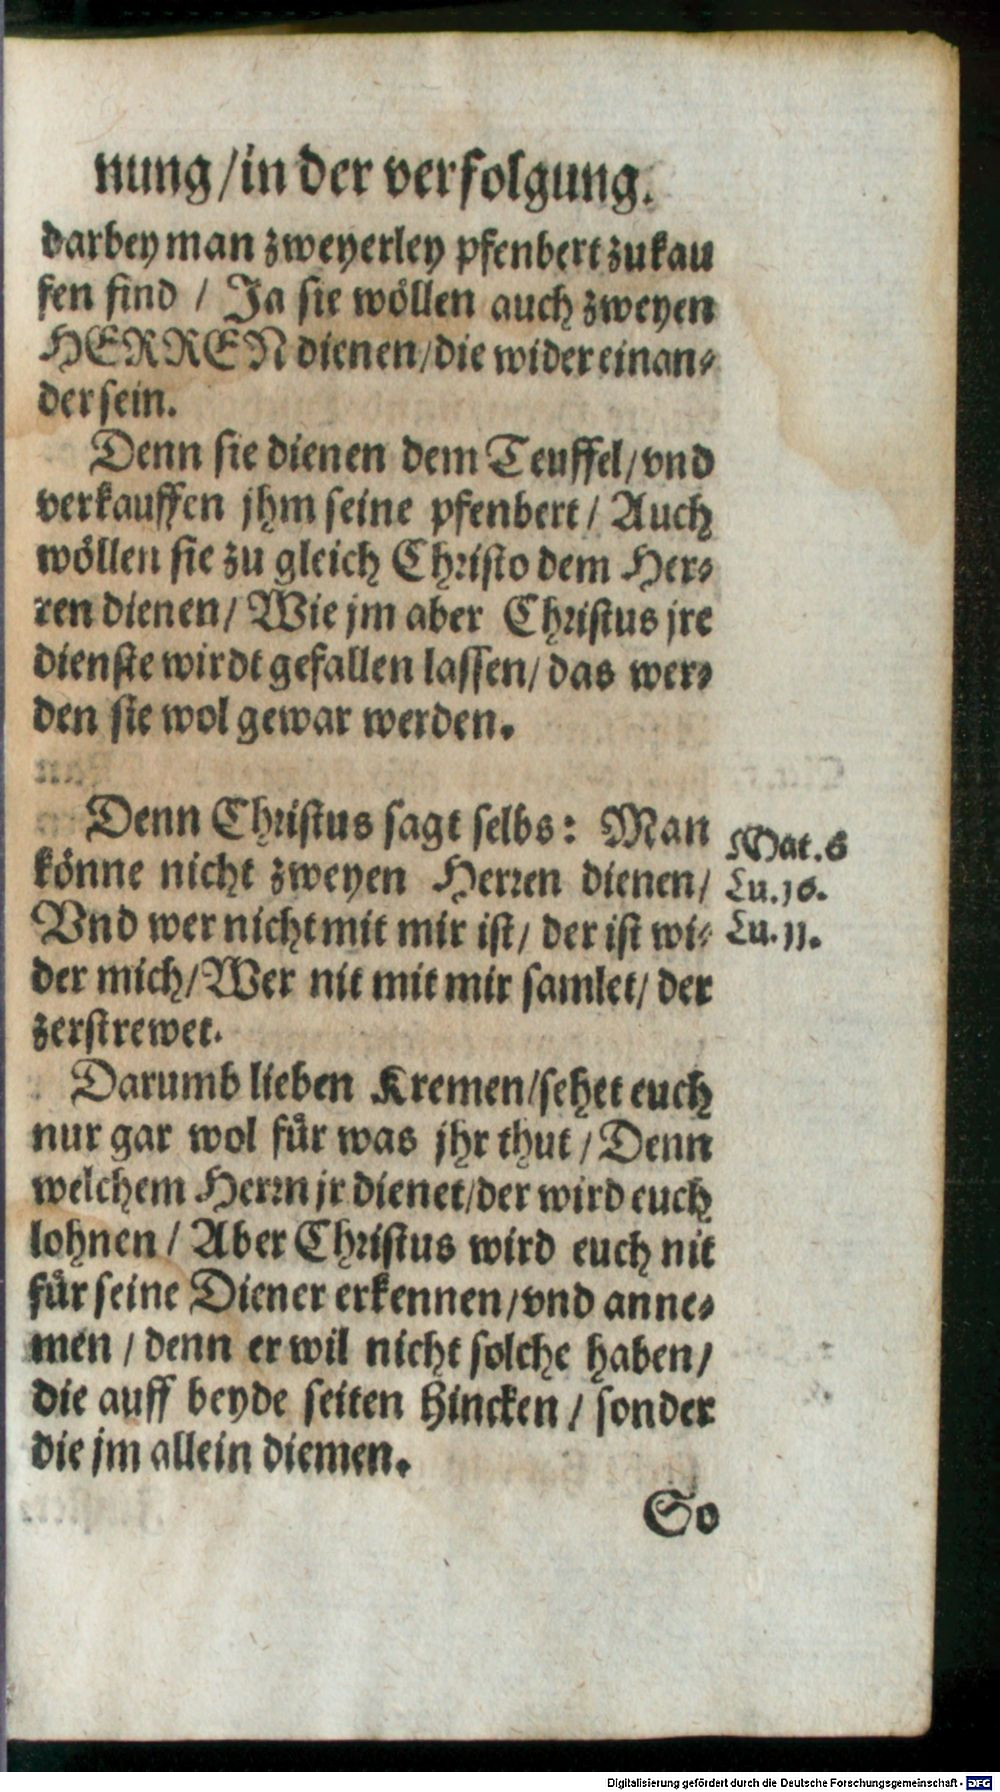 nung/in der verfolgung.
darbey man zweyerley pfenbert zukau
fen find / Ja sie wöllen auch zweyen
HERREN dienen/die wider einan-
der sein.
Denn sie dienen dem Teuffel/vnd
verkauffen jhm seine pfenbert/ Auch
wöllen sie zu gleich Christo dem Her-
ren dienen/ Wie jm aber Christus jre
dienste wirdt gefallen lassen/ das wer-
den sie wol gewar werden.
Denn Christus sagt selbs: Man
könne nicht zweyen Herren dienen/
Vnd wer nicht mit mir ist/ der ist wi-
der mich/Wer nit mit mir samlet/ der
zerstrewet.
Mat.6
Lu.16.
Lu.11.
Darumb lieben Kremen/sehet euch
nur gar wol für was jhr thut / Denn
welchem Herrn jr dienet/der wird euch
lohnen / Aber Christus wird euch nit
für seine Diener erkennen/vnd anne-
men / denn er wil nicht solche haben/
die auff beyde seiten Hincken / sonder
die jm allein diemen.
So
Digitalisierung gefördert durch die Deutsche Forschungsgemeinschaft - DFG